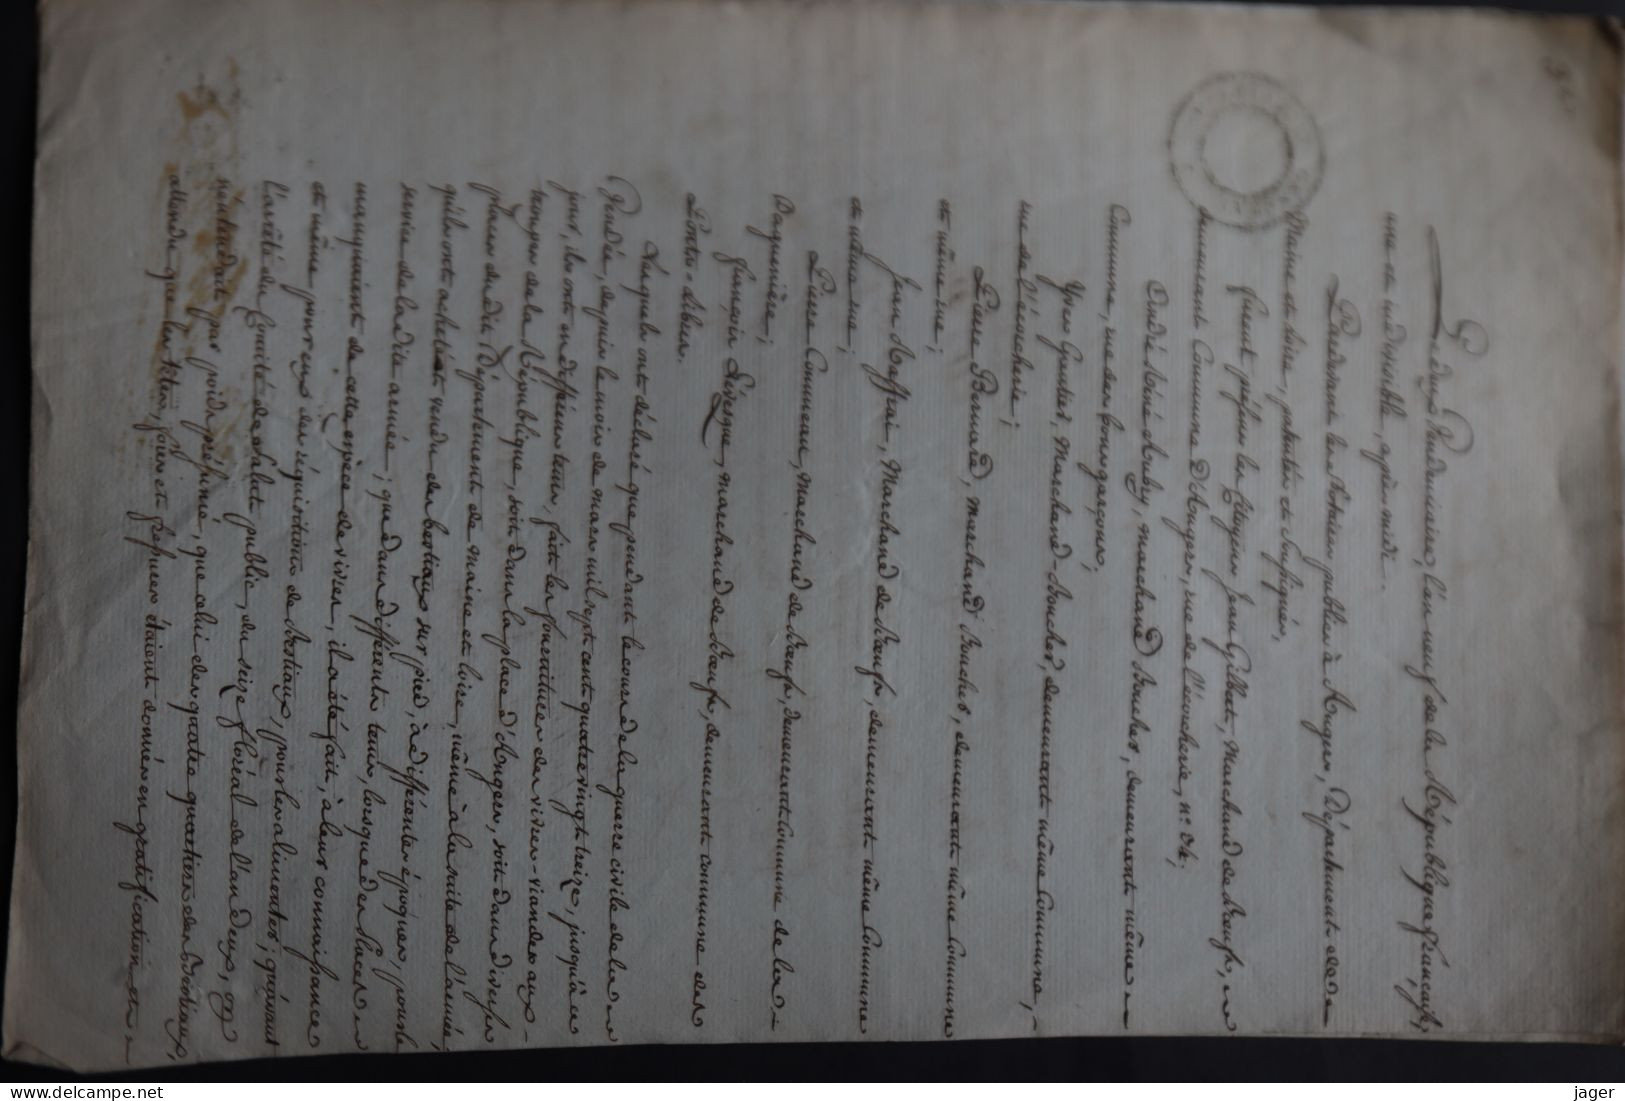 Le deux Vendémiaire, l'an neuf de la République française,
une et indivisible, après midi.
Pardevant les Notaires publics à Angers, Département de
Maine et loire, patentés et soussignés,
furent présens les Citoyens Jean Gillet, Marchand de bœufs,
demeurant Commune d'Angers, rue de l'écorcherie, n°
André René Auby, marchand Boucher, demeurant même
Commune, rue des bourgeois;
Yves Marchand-Boucher, demeurant même Commune,
rue de l'écorcherie;
Pierre Bernard, marchand Boucher, demeurant même Commune
et même rue;
Jean Marchand de Bœufs, demeurant même Commune
et même rue;
Pierre Commeau, Marchand de Bœufs, demeurant Commune de la
Daguenière;
François Lévesque, marchand de Bœufs, demeurant commune des
Ponts-
Lesquels ont déclaré que pendant le cours de la guerre civile de la
Vendée, depuis le mois de mars mil sept cent quatre vingt treize, jusqu'à ce
jour, ils ont en différens tems, fait les fournitures des vivres-viandes aux
troupes de la République, soit dans la place d'Angers, soit dans diverses
places du dit Département de maine et loire, même à la suite de l'armée;
qu'ils ont acheté et vendu des bestiaux sur pied, à différentes époques, pour le
service de la dite armée; que dans différens tems, lorsque des Places
manquaient de cette espèce de vivres, il a été fait, à leur connaissance
et même pour eux des réquisitions de Bestiaux, pour les alimenter; qu'avant
l'arrêté du Comité de Salut public, du seize floréal de l'an deux, on
n'entendait par poids présumé, que celui des quatre quartiers des Bestiaux,
attendu que les têtes, foies et fressures étaient donnés en gratification
jager